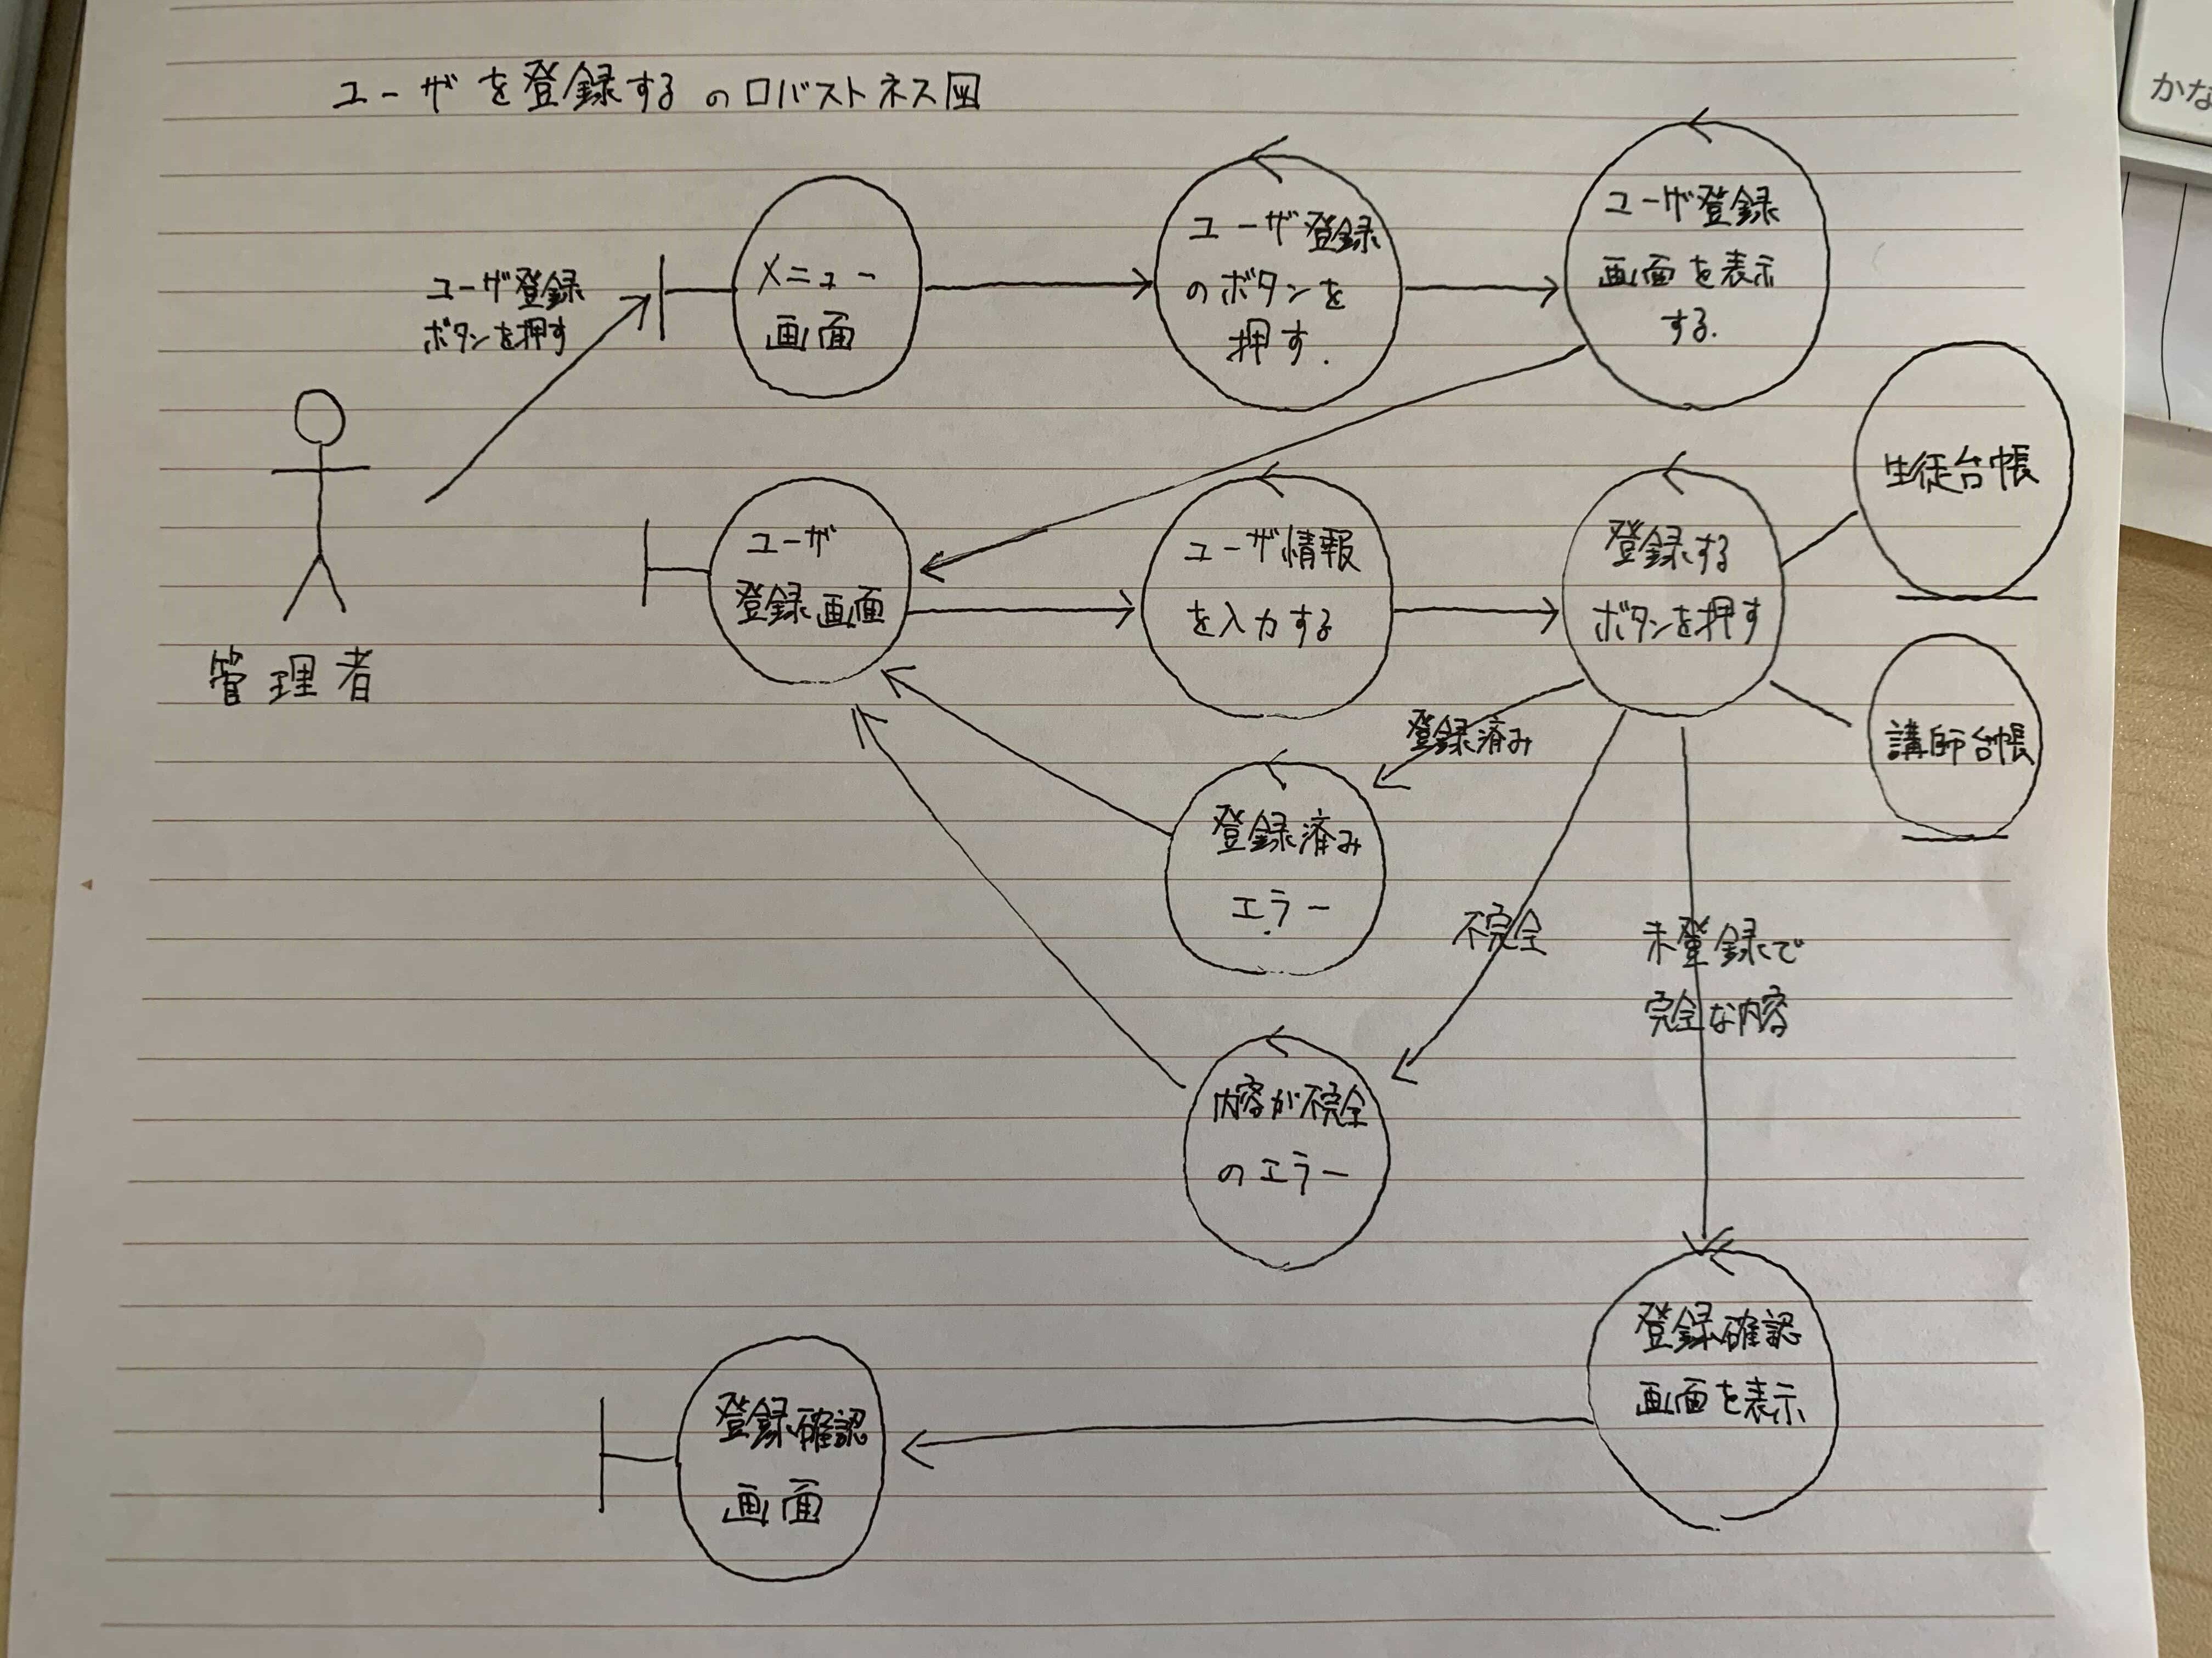 ユーザを登録するのロバストネス図
かな
ユーザ登録
ボタンを押す
メニュー
画面
ユーザ登録
のボタンを
押す.
ユーザ登録
画面を表示
する.
管理者
ユーザ
登録画面
ユーザ情報
を入力する
登録する
ボタンを押す
生徒台帳
講師台帳
登録済み
登録済み
エラー
不完全
未登録で
完全な内容
内容が不完全
のエラー
登録確認
画面を表示
登録確認
画面